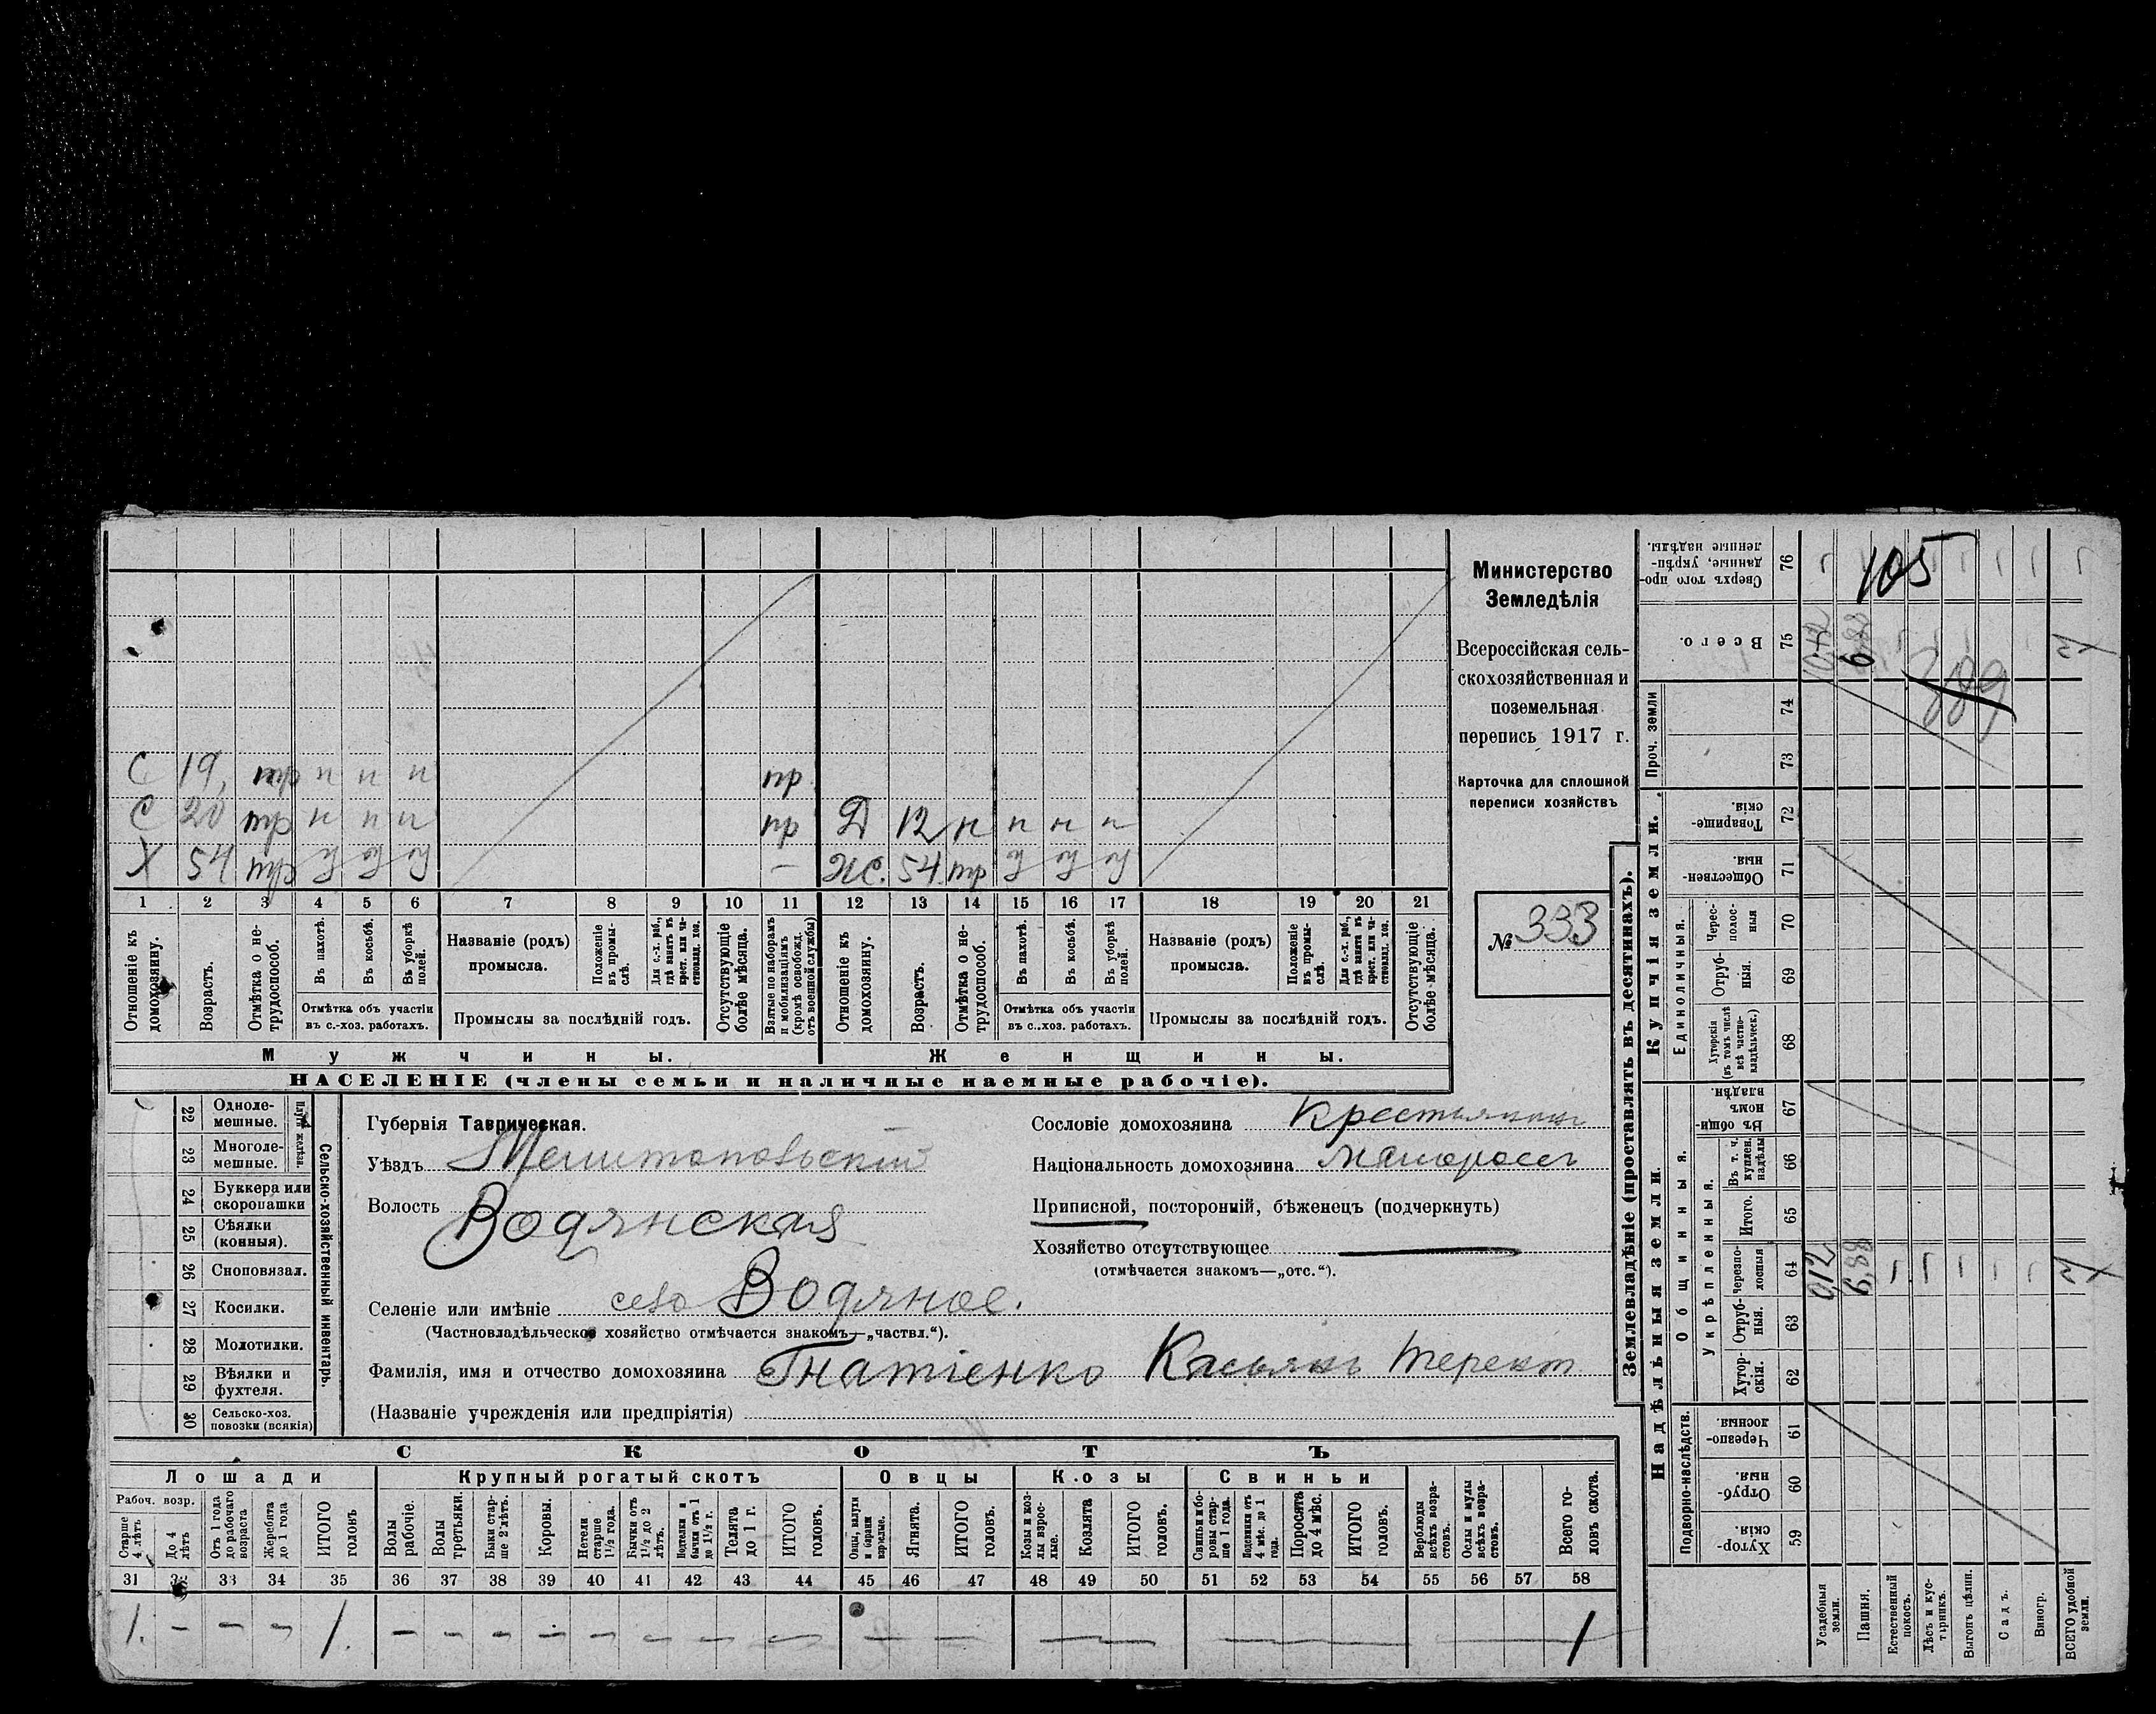 Министерство
Земледѣлія
Всероссійская сель-
скохозяйственная и
поземельная
перепись 1917 г.
Карточка для сплошной
переписи хозяйствъ
№ 333
С 19 н н н пр
С 20 н н н пр Д 12 н н н н
Х 54 — Ж. 54
1 2 3 4 5 6 7 8 9 10 11 12 13 14 15 16 17 18 19 20 21
Отношеніе къ домохозяину.
Возрастъ.
Отмѣтка о не-трудоспособ.
Въ пахотѣ.
Въ косьбѣ.
Въ уборкѣ полей.
Отмѣтка объ участіи въ с.-хоз. работахъ.
Названіе (родъ) промысла.
Положеніе въ промы-слѣ.
Для с.-х. раб., гдѣ занятъ въ крест. или ча-стновлад. хоз.
Промыслы за послѣдній годъ.
Отсутствующіе болѣе мѣсяца.
Взятые по наборамъ и мобилизаціямъ (кромѣ освобожд. отъ военной службы)
Отношеніе къ домохозяину.
Возрастъ.
Отмѣтка о не-трудоспособ.
Въ пахотѣ.
Въ косьбѣ.
Въ уборкѣ полей.
Отмѣтка объ участіи въ с.-хоз. работахъ.
Названіе (родъ) промысла.
Положеніе въ промы-слѣ.
Для с.-х. раб., гдѣ занята въ крест. или ча-стновлад. хоз.
Промыслы за послѣдній годъ.
Отсутствующіе болѣе мѣсяца.
Мужчины. Женщины.
НАСЕЛЕНІЕ (члены семьи и наличные наемные рабочіе).
Сельско-хозяйственный инвентарь.
Плуги желѣзн.
22 Одноле-мешные.
23 Многоле-мешные.
24 Буккера или скоропашки
25 Сѣялки (конныя).
26 Сноповязал.
27 Косилки.
28 Молотилки.
29 Вѣялки и фухтеля.
30 Сельско-хоз. повозки (всякія)
Губернія Таврическая.
Уѣздъ Мелитопольскій
Волость Водянская
Селеніе или имѣніе село Водяное.
(Частновладѣльческое хозяйство отмѣчается знакомъ—„частвл.“).
Фамилія, имя и отчество домохозяина Гнатіенко Касьянъ Терент.
(Названіе учрежденія или предпріятія)
Сословіе домохозяина Крестьянинъ
Національность домохозяина малороссъ
Приписной, посторонній, бѣженецъ (подчеркнуть)
Хозяйство отсутствующее —
(отмѣчается знакомъ—„отс.“).
СКОТЪ
Лошади Крупный рогатый скотъ Овцы Козы Свиньи
Рабоч. возр.
Старше 4 лѣтъ
До 4 лѣтъ
Отъ 1 года до рабочаго возраста
Жеребята до 1 года
ИТОГО головъ
Волы рабочіе.
Волы третьяки.
Быки стар-ше 2 лѣтъ.
Коровы.
Нетели старше 1½ года.
Бычки отъ 1½ до 2 лѣтъ.
Подтелки и бычки отъ 1 до 1½ г.
Телята до 1 г.
ИТОГО головъ.
Овцы, валухи и бараны взрослые.
Ягнята.
ИТОГО головъ.
Козы и коз-лы взрос-лые.
Козлята
ИТОГО головъ.
Свиньи и бо-ровы стар-ше 1 года.
Подсвинки отъ 4 мѣс. до 1 года.
Поросята до 4 мѣс.
ИТОГО головъ.
Верблюды всѣхъ возра-стовъ.
Ослы и мулы всѣхъ возра-стовъ.
Всего го-ловъ скота.
31 32 33 34 35 36 37 38 39 40 41 42 43 44 45 46 47 48 49 50 51 52 53 54 55 56 57 58
1. — — — 1. — — — — — — — — — — — — — 1
Землевладѣніе (проставлять въ десятинахъ).
Надѣльныя земли.
Купчія земли.
Проч. земли
Подворно-наслѣдств.
Общинныя.
Укрѣпленныя.
Единоличныя.
Сверхъ того про-данные, укрѣп-ленные надѣлы. 76
Всего. 75
74
73
Товарище-скія. 72
Обществен-ныя. 71
Черес-полос-ныя 70
Отруб-ныя. 69
Хуторскія (въ томъ числѣ всѣ частно-владѣльческ.) 68
Въ общин-номъ владѣн. 67
Въ т. ч. куплен. надѣлы 66
Итого. 65
Черезпо-лосныя 64
Отруб-ныя. 63
Хутор-скія. 62
Черезпо-лосныя 61
Отруб-ныя. 60
Хутор-скія. 59
Усадебныя земли.
Пашня.
Естественный покосъ.
Лѣсъ и кус-тарникъ.
Выгонъ цѣлин.
Садъ.
Виногр.
ВСЕГО удобной земли.
105
0,12 6,88